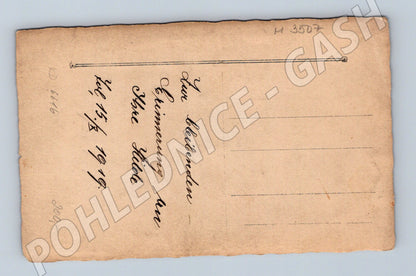 Zur bleibenden
Erinnerung an
Ihre Hilde
15./3 1919.
H 3507
POHLEDNICE - GASH